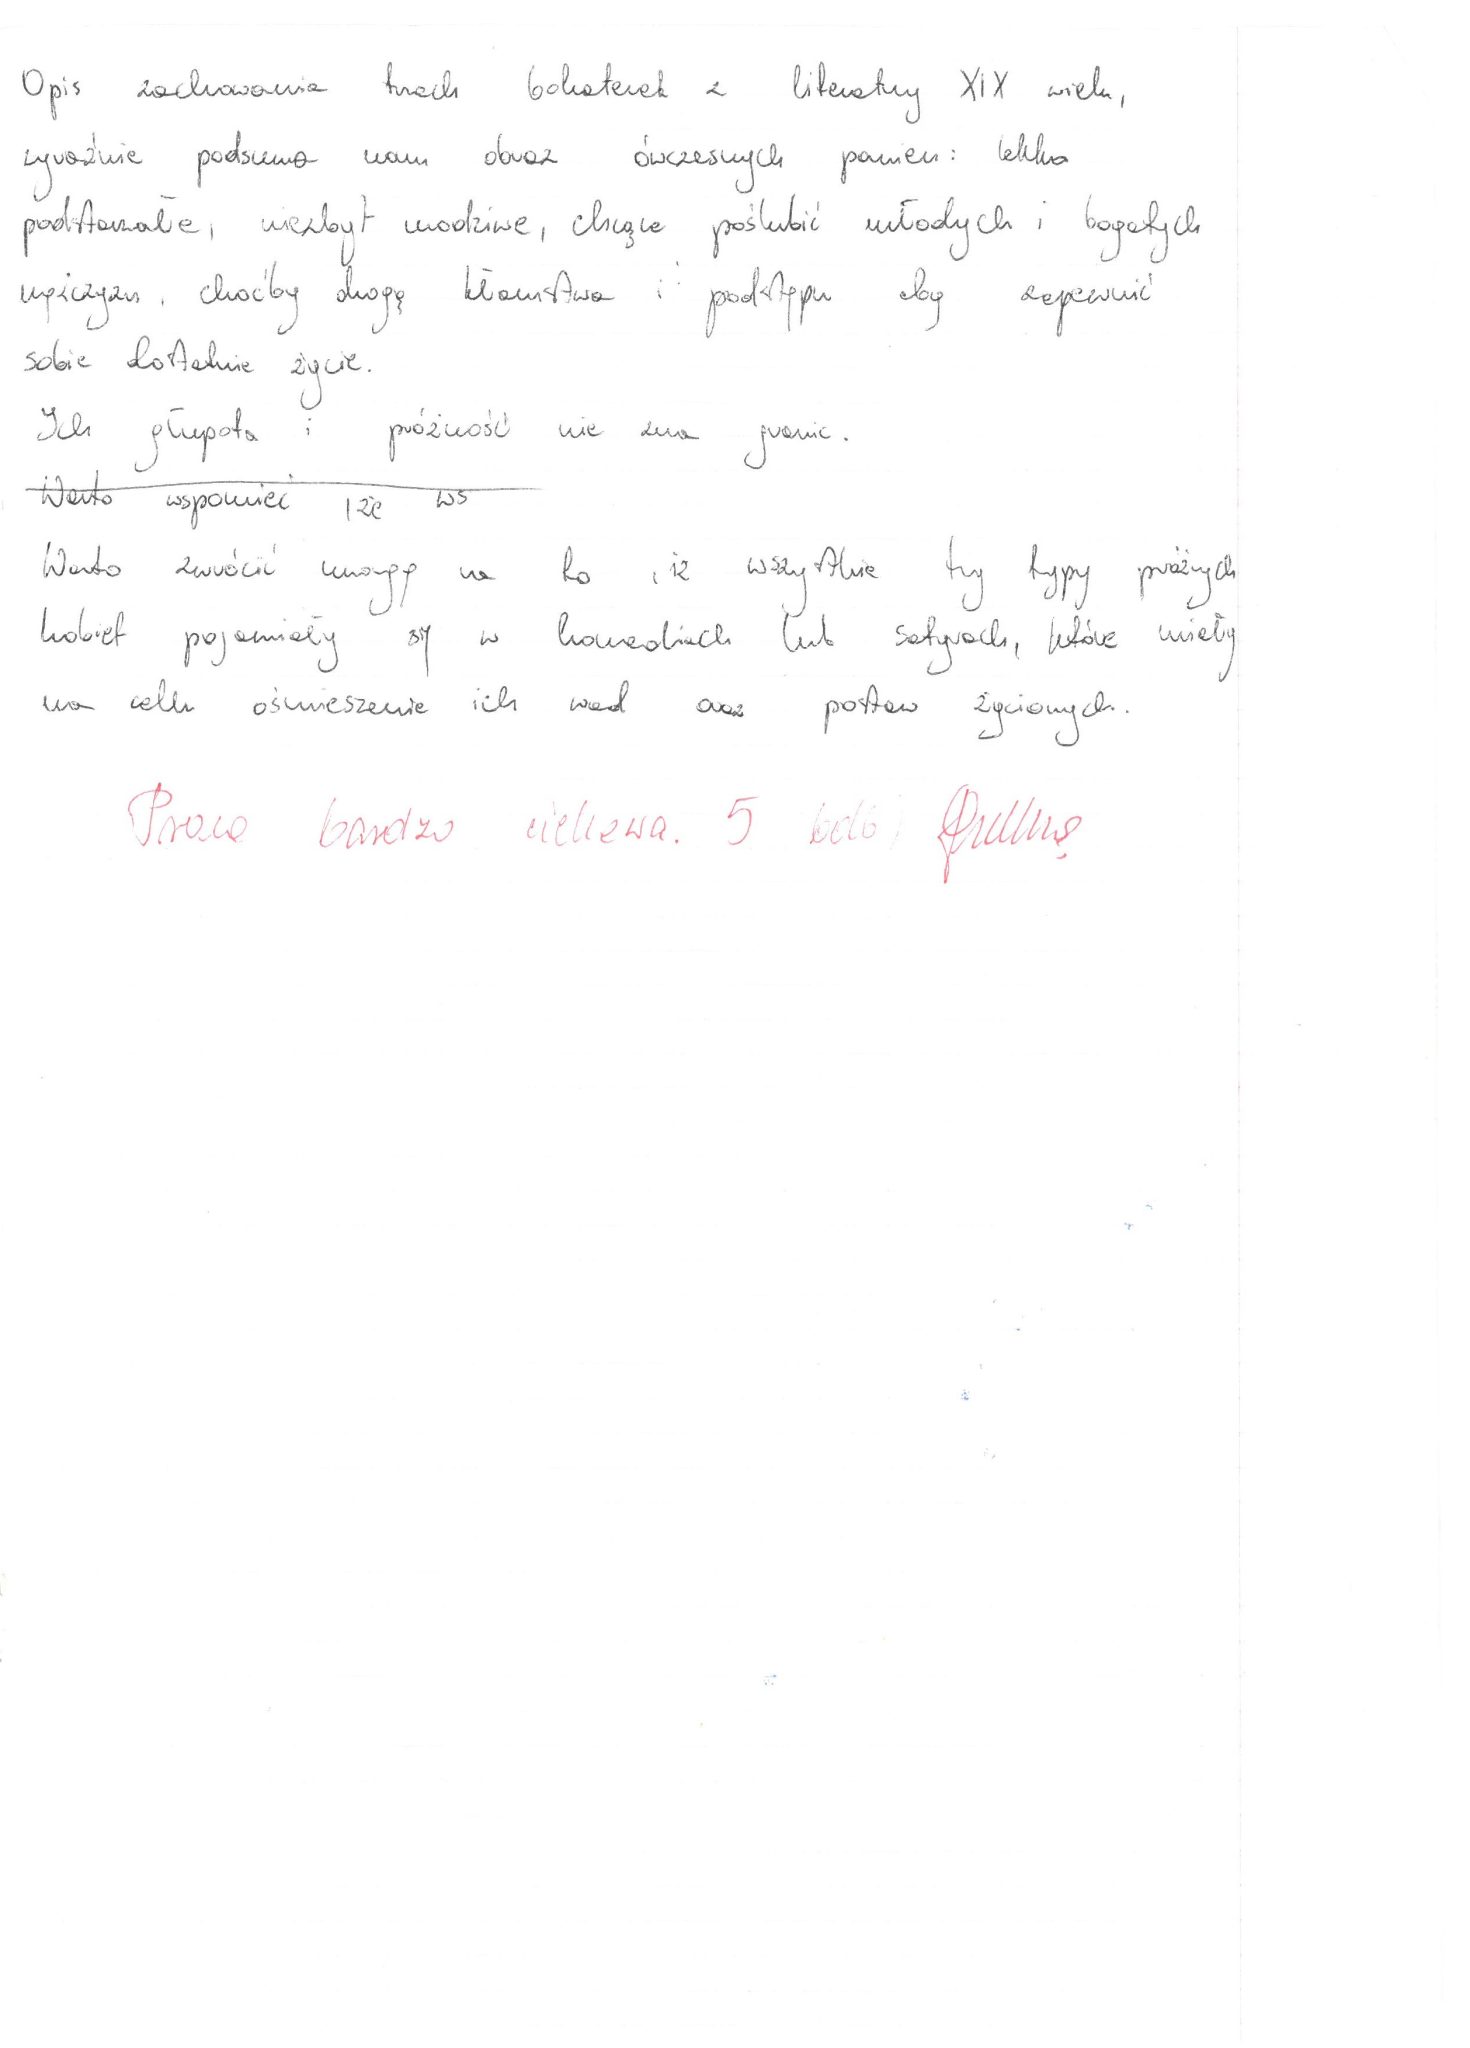 Opis zachowania trzech bohaterek z literatury XIX wieku,
wyraźnie podsuwa nam obraz ówczesnych panien: lekko
podstarzałe, niezbyt urodziwe, chcące poślubić młodych i bogatych
mężczyzn, choćby drogą kłamstwa i podstępu aby zapewnić
sobie dostatnie życie.
Ich głupota i próżność nie zna granic.
Warto wspomieć , że ws
Warto zwrócić uwagę na to , iż wszystkie trzy typy próżnych
kobiet pojawiały się w komediach lub satyrach, które miały
na celu ośmieszenie ich wad oraz postaw życiowych.
Praca bardzo ciekawa. 5